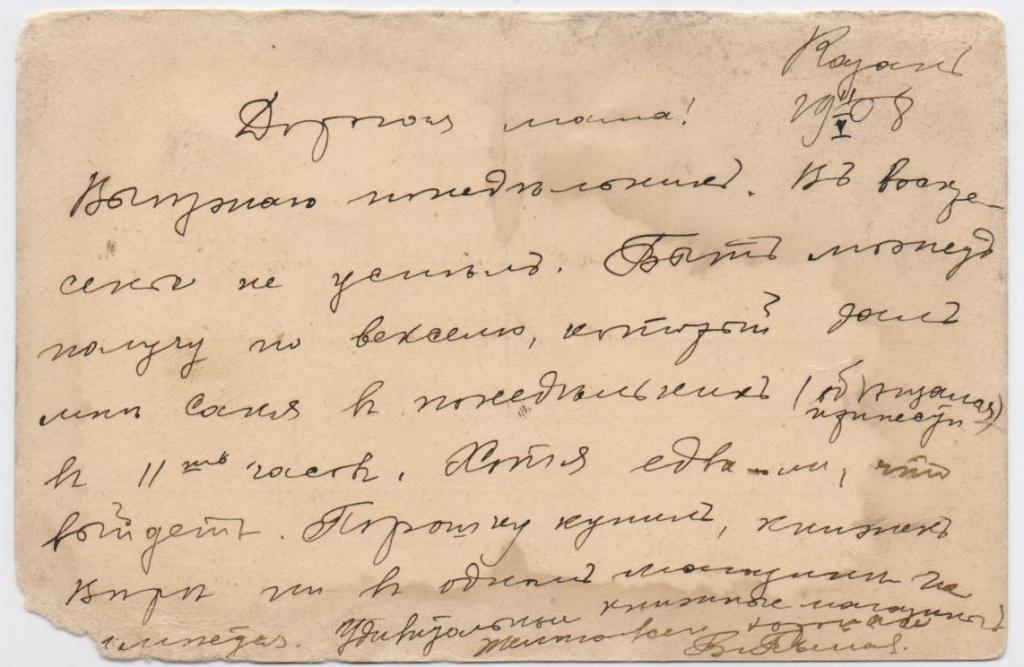 Казань
29 II/V 08
Дорогая мама!
Выезжаю понедѣльникъ. Въ воскре-
сенье не успѣлъ. Быть можетъ
получу по векселю, который далъ
мнѣ Саня в понедѣльникъ (обѣщалась
принести)
в 11 ть часов. Хотя едва-ли, что
выйдетъ. Порошку купилъ, книжекъ
Вѣры ни в одномъ магазинѣ не
имѣется. Удивительные книжные магазины